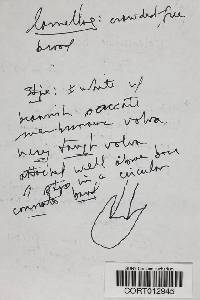 Lamellae: crowded, free
broad
Stipe: ± white w/
brownish saccate
membranous volva.
very tough volva
attached well above base
of stipe in a circular
connate band
CORT012945